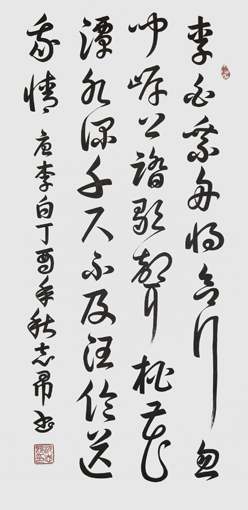 李白乘舟将欲行忽
闻岸上踏歌声桃花
潭水深千尺不及汪伦送
我情 唐李白丁酉年秋志昂书